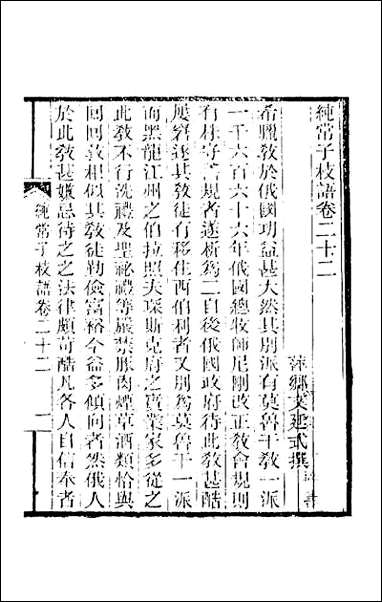 純常子枝語卷二十二
萍鄉文廷式撰
希臘教於俄國功益甚大然其別派有莫魯干教一派
一千六百六十六年俄國總牧師尼剛改正教會規則
有株守舊規者遂析為二自後俄國政府待此教甚酷
屢窘逐其教徒有移住西伯利者又別為莫魯干一派
而黑龍江州之伯拉照夫琛斯克府之實業家多從之
此教不行洗禮及聖祕禮等嚴禁豚肉煙草酒類恰與
回回教相似其教徒勤儉富裕今益多傾向者然俄人
於此教甚嫌忌待之之法律頗苛酷凡各人自信奉者
純常子枝語卷二十二
一